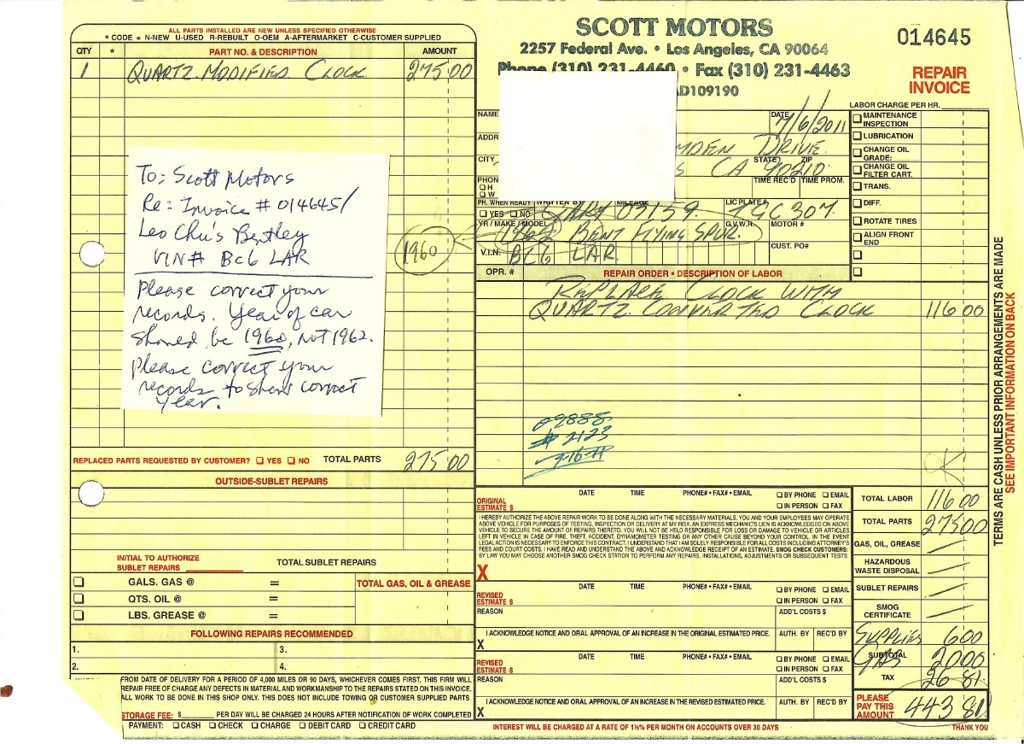 SCOTT MOTORS
2257 Federal Ave. • Los Angeles, CA 90064
Phone (310) 231-4460 • Fax (310) 231-4463
AD109190
014645
REPAIR
INVOICE
ALL PARTS INSTALLED ARE NEW UNLESS SPECIFIED OTHERWISE
* CODE = N-NEW U-USED R-REBUILT O-OEM A-AFTERMARKET C-CUSTOMER SUPPLIED
QTY * PART NO. & DESCRIPTION AMOUNT
1 QUARTZ MODIFIED CLOCK 275 00
To: Scott Motors
Re: Invoice # 014645/
Leo Chu's Bentley
VIN# BC6 LAR
Please correct your
records. Year of car
should be 1960, not 1962.
Please correct your
records to show correct
year.
1960
REPLACED PARTS REQUESTED BY CUSTOMER? YES NO TOTAL PARTS 275 00
OUTSIDE-SUBLET REPAIRS
INITIAL TO AUTHORIZE
SUBLET REPAIRS TOTAL SUBLET REPAIRS
GALS. GAS @ = TOTAL GAS, OIL & GREASE
QTS. OIL @ =
LBS. GREASE @ =
FOLLOWING REPAIRS RECOMMENDED
1. 3.
2. 4.
FROM DATE OF DELIVERY FOR A PERIOD OF 4,000 MILES OR 90 DAYS, WHICHEVER COMES FIRST, THIS FIRM WILL
REPAIR FREE OF CHARGE ANY DEFECTS IN MATERIAL AND WORKMANSHIP TO THE REPAIRS STATED ON THIS INVOICE.
ALL WORK TO BE DONE IN THIS SHOP ONLY. THIS DOES NOT INCLUDE TOWING OR CUSTOMER SUPPLIED PARTS.
STORAGE FEE: $ PER DAY WILL BE CHARGED 24 HOURS AFTER NOTIFICATION OF WORK COMPLETED
PAYMENT: CASH CHECK CHARGE DEBIT CARD CREDIT CARD
NAME DATE 7/6/2011
ADDR MDEN DRIVE
CITY STATE ZIP
S CA 90210
PHON TIME REC'D TIME PROM.
H
W
PH. WHEN READY WRITTEN BY MILEAGE LIC PLATE #
YES NO GARY 07159 7GC307
YR / MAKE / MODEL G.V.W.R. MOTOR #
1962 BENT FLYING SPUR.
V.I.N. BC6 LAR CUST. PO#
OPR. # REPAIR ORDER • DESCRIPTION OF LABOR
REPLACE CLOCK WITH
QUARTZ CONVERTED CLOCK 116 00
# 2123
LABOR CHARGE PER HR.
MAINTENANCE
INSPECTION
LUBRICATION
CHANGE OIL
GRADE:
CHANGE OIL
FILTER CART.
TRANS.
DIFF.
ROTATE TIRES
ALIGN FRONT
END
OK
ORIGINAL
ESTIMATE $ DATE TIME PHONE# • FAX# • EMAIL BY PHONE EMAIL
IN PERSON FAX
I HEREBY AUTHORIZE THE ABOVE REPAIR WORK TO BE DONE ALONG WITH THE NECESSARY MATERIALS. YOU AND YOUR EMPLOYEES MAY OPERATE
ABOVE VEHICLE FOR PURPOSES OF TESTING, INSPECTION OR DELIVERY AT MY RISK. AN EXPRESS MECHANIC'S LIEN IS ACKNOWLEDGED ON ABOVE
VEHICLE TO SECURE THE AMOUNT OF REPAIRS THERETO. YOU WILL NOT BE HELD RESPONSIBLE FOR LOSS OR DAMAGE TO VEHICLE OR ARTICLES
LEFT IN VEHICLE IN CASE OF FIRE, THEFT, ACCIDENT, DYNAMOMETER TESTING OR ANY OTHER CAUSE BEYOND YOUR CONTROL. IN THE EVENT
LEGAL ACTION IS NECESSARY TO ENFORCE THIS CONTRACT, I UNDERSTAND THAT I AM SOLELY RESPONSIBLE FOR ALL COSTS INCLUDING ATTORNEY'S
FEES AND COURT COSTS. I HAVE READ AND UNDERSTAND THE ABOVE AND ACKNOWLEDGE RECEIPT OF AN ESTIMATE. SMOG CHECK CUSTOMERS:
BY LAW YOU MAY CHOOSE ANOTHER SMOG CHECK STATION TO PERFORM ANY REPAIRS, INSTALLATIONS, ADJUSTMENTS OR SUBSEQUENT TESTS.
X
REVISED
ESTIMATE $ DATE TIME PHONE# • FAX# • EMAIL BY PHONE EMAIL
IN PERSON FAX
REASON ADD'L COSTS $
I ACKNOWLEDGE NOTICE AND ORAL APPROVAL OF AN INCREASE IN THE ORIGINAL ESTIMATED PRICE. AUTH. BY REC'D BY
X
REVISED
ESTIMATE $ DATE TIME PHONE# • FAX# • EMAIL BY PHONE EMAIL
IN PERSON FAX
REASON ADD'L COSTS $
I ACKNOWLEDGE NOTICE AND ORAL APPROVAL OF AN INCREASE IN THE REVISED ESTIMATED PRICE. AUTH. BY REC'D BY
X
INTEREST WILL BE CHARGED AT A RATE OF 1½% PER MONTH ON ACCOUNTS OVER 30 DAYS
TOTAL LABOR 116 00
TOTAL PARTS 275 00
GAS, OIL, GREASE
HAZARDOUS
WASTE DISPOSAL
SUBLET REPAIRS
SMOG
CERTIFICATE
SUPPLIES 6 00
SUBTOTAL GAS 20 00
TAX 26 81
PLEASE
PAY THIS
AMOUNT 443 81
THANK YOU
TERMS ARE CASH UNLESS PRIOR ARRANGEMENTS ARE MADE
SEE IMPORTANT INFORMATION ON BACK